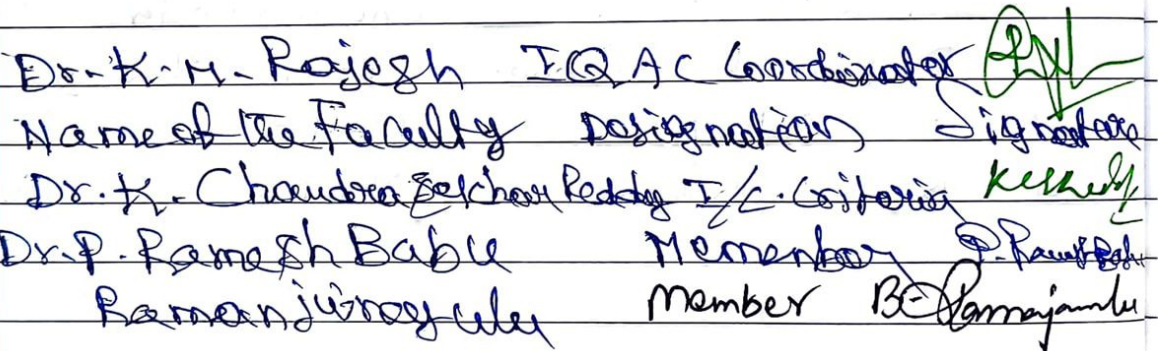 Dr. K. M. Rajesh IQAC Coordinator
Name of the Faculty Designation Signature
Dr. K. Chandra Sekhar Reddy I/C. Criteria
Dr. P. Ramesh Babu Memember P. Ramesh Babu
Ramanjuneyulu Member B Ramanjaneulu